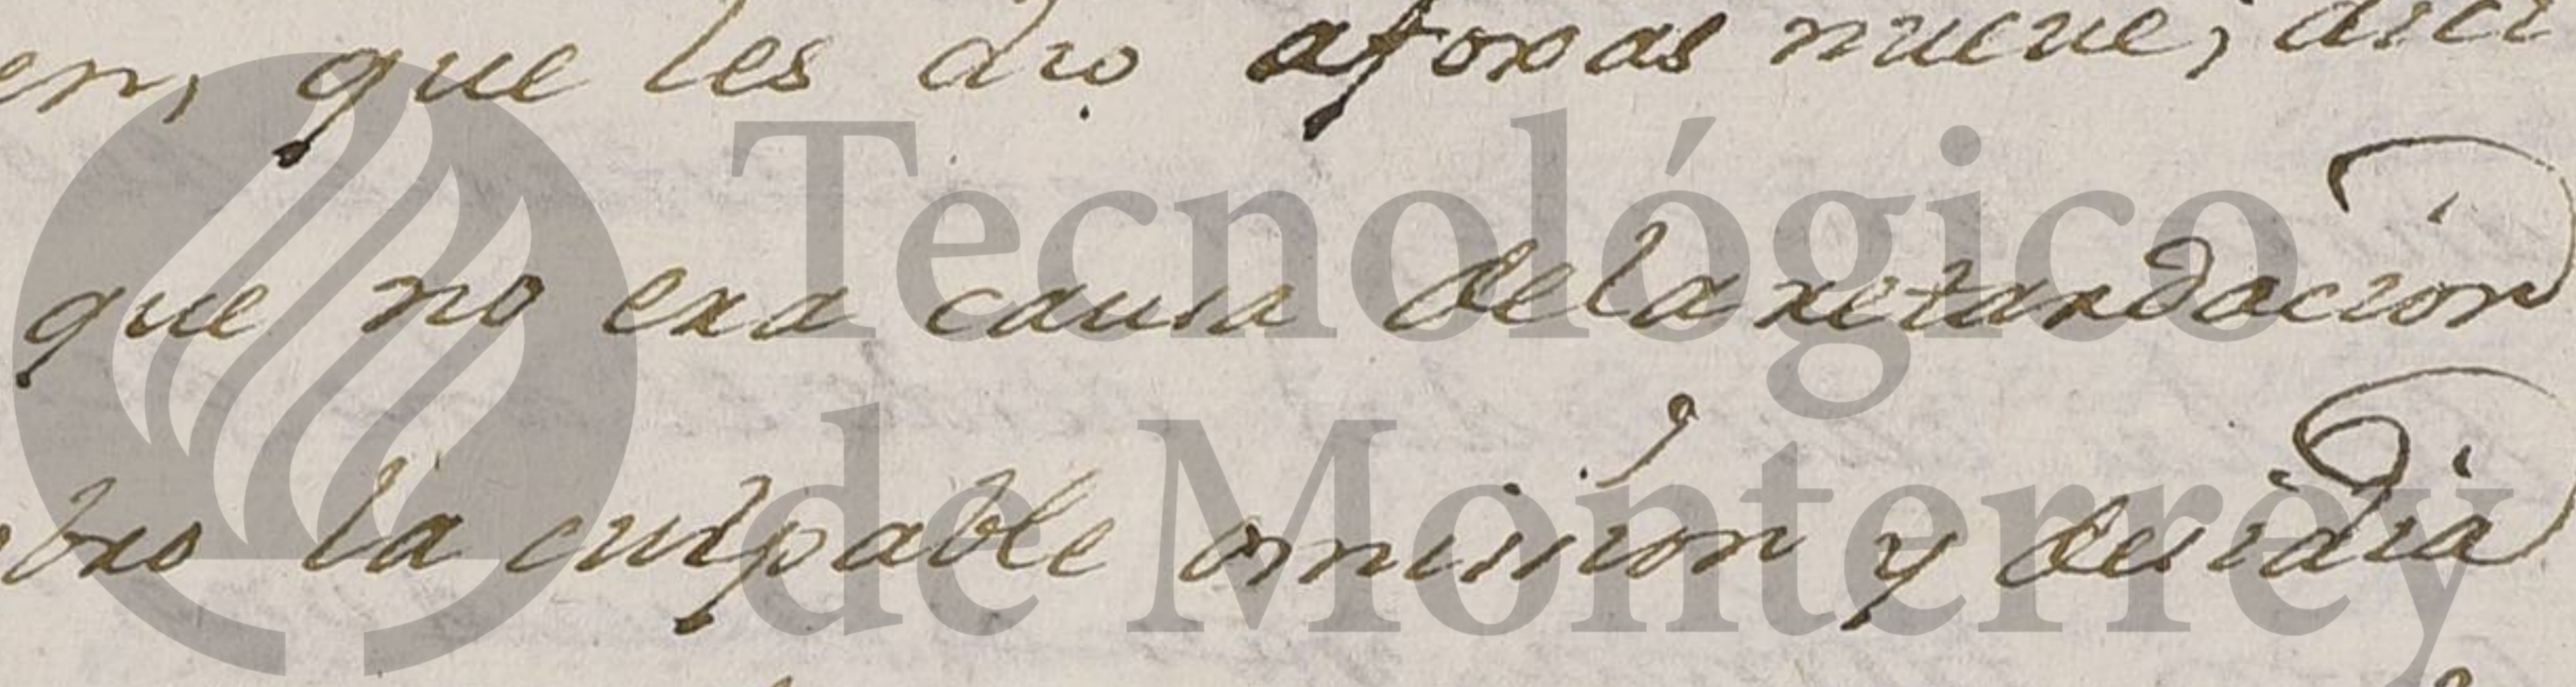 en, que les dio afoxas nueve, dici
que no exa causa dela retardacion
tro la culpable omission y desidia
Tecnológico
de Monterrey